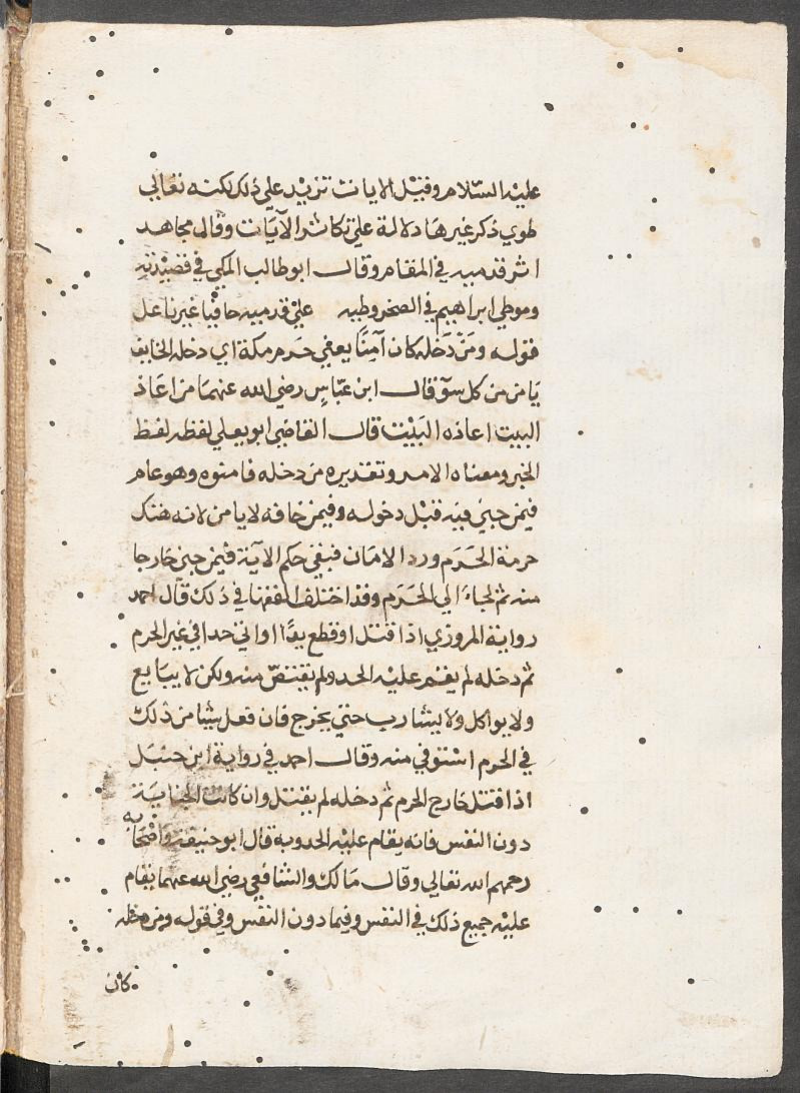 عليه السلام وقيل الايات تزيد علي ذلك لكنه تعالي
طوي ذكر غيرها دلالة علي تكاثر الآيات وقال مجاهد
اثر قدميه في المقام وقال ابو طالب المكي في قصيدته
وموطي ابراهيم في الصخر وطيه علي قدميه حافيا غير ناعل
قوله ومن دخله كان آمنا يعني حرم مكة اي دخله الخايف
يامن من كل سوٓ قال ابن عباس رضي الله عنهما من اعاذ
البيت اعاذه البيت قال القاضي ابو يعلي لفظه لفظ
الخبر ومعناه الامر وتقديره من دخله فامنوه وهو عام
فيمن جني فيه قبل دخوله وفيمن خافه لا يامن لانه هتك
حرمة الحرم ورد الامان فبقي حكم الآية فيمن جني خارجا
منه ثم لجاء الي الحرم وقد اختلف الفقها في ذلك قال احمد
رواية المروزي اذا قتل او قطع يدًا او اتي حدا في غير الحرم
ثم دخله لم يقم عليه الحد ولم يقتص منه ولكن لا يبايع
ولا يواكل ولا يشارب حتي يخرج فان فعل شيا من ذلك
في الحرم استوفي منه وقال احمد في رواية ابن حنبل
اذا قتل خارج الحرم ثم دخله لم يقتل وان كانت الجناية
دون النفس فانه يقام عليه الحد وبه قال ابو حنيفة واصحابه
رحمهم الله تعالي وقال مالك والشافعي رضي الله عنهما يقام
عليه جميع ذلك في النفس وفيما دون النفس وفي قوله ومن دخله
كان